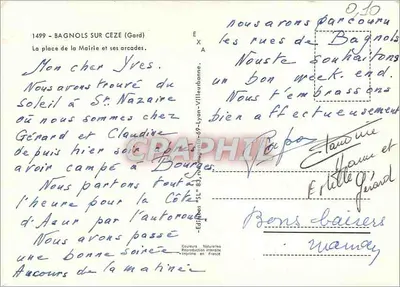 1499 - BAGNOLS SUR CÈZE (Gard)
La place de la Mairie et ses arcades.
Mon cher Yves.
Nous avons trouvé du
soleil à St. Nazaire
où nous sommes chez
Gérard et Claudine
depuis hier soir après
avoir campé à Bourges
Nous partons tout à
l'heure pour la Côte
d'Azur par l'autoroute.
Nous avons passé
une bonne soirée
Au cours de la matinée
EXA
Editions "SL"
69-Lyon-Villeurbanne.
Couleurs Naturelles
Reproduction interdite
Imprimé en France
0,10
nous avons parcouru
les rues de Bagnols
Nous te souhaitons
un bon week.end.
Nous t'embrassons
bien affectueusement
Papa
Claudine
Gérard
Bons baisers
maman
CARTE POSTALE
GRAPHIE